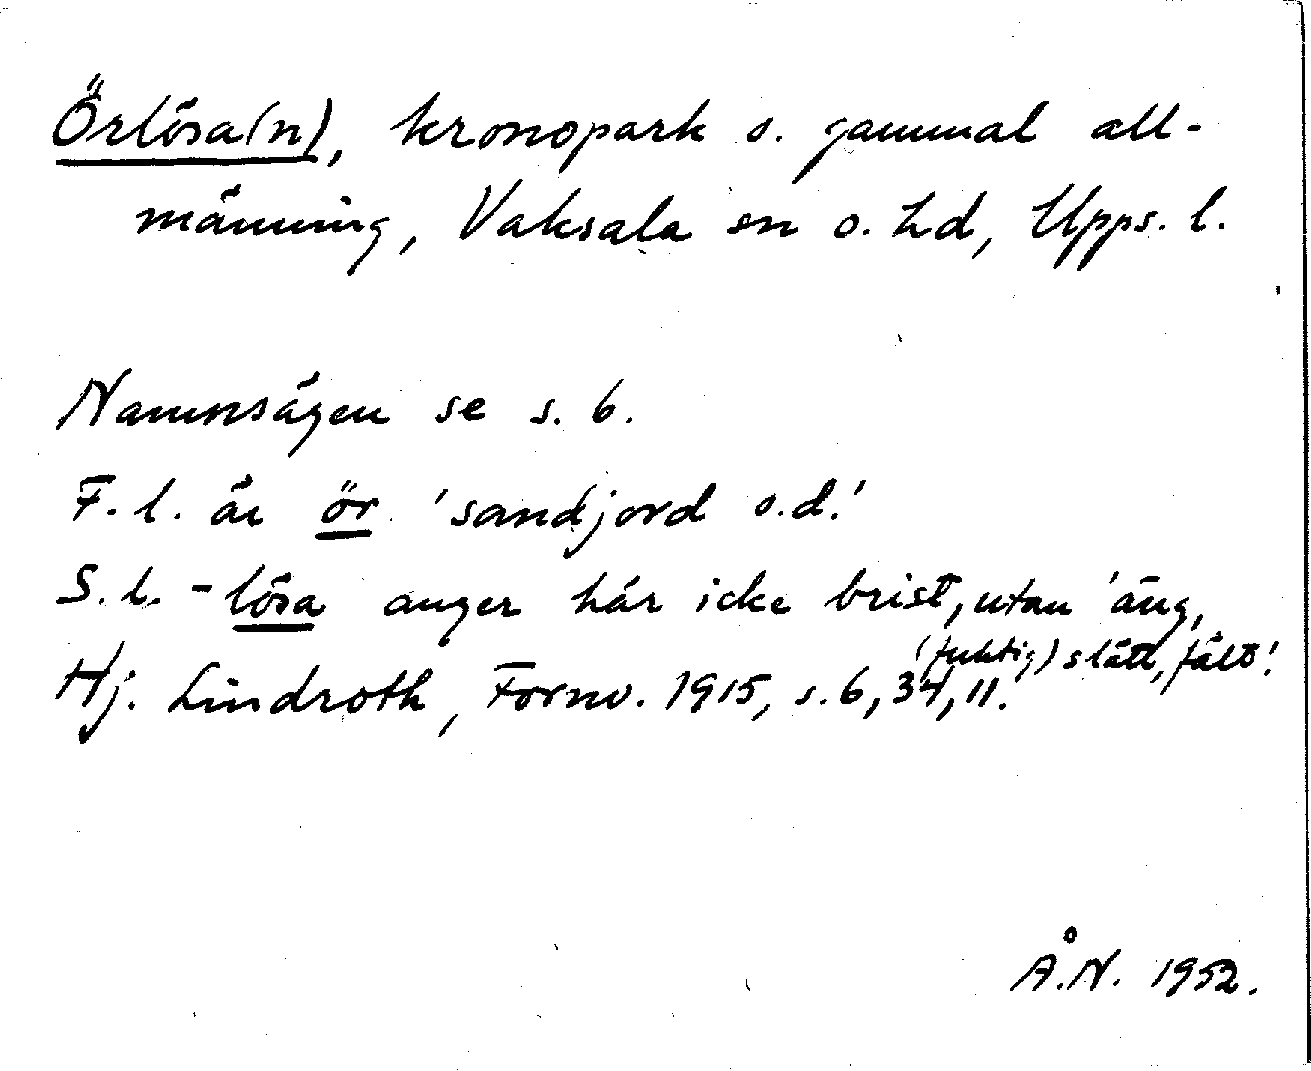 Örlösa(n), kronopark o. gammal all-
männing, Vaksala sn o. hd, Upps. l.
Namnsägen se s. 6.
F. l. är ör 'sandjord o.d.'
S. l. -lösa anger här icke brist, utan 'äng,
(fuktig) slätt, fält'.
Hj. Lindroth, Fornv. 1915, s. 6, 34, 11.
Å.N. 1952.